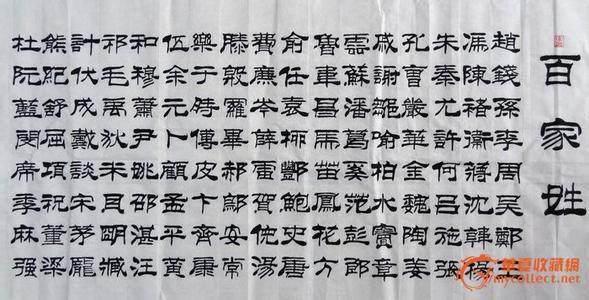 百家姓
趙錢孫李周吳鄭王
馮陳褚衛蔣沈韓楊
朱秦尤許何呂施張
孔曹嚴華金魏陶姜
戚謝鄒喻柏水竇章
雲蘇潘葛奚范彭郎
魯韋昌馬苗鳳花方
俞任袁柳酆鮑史唐
費廉岑薛雷賀倪湯
滕殷羅畢郝鄔安常
樂于時傅皮卞齊康
伍余元卜顧孟平黃
和穆蕭尹姚邵湛汪
祁毛禹狄米貝明臧
計伏成戴談宋茅龐
熊紀舒屈項祝董梁
杜阮藍閔席季麻强
华夏收藏网
mycollect.net